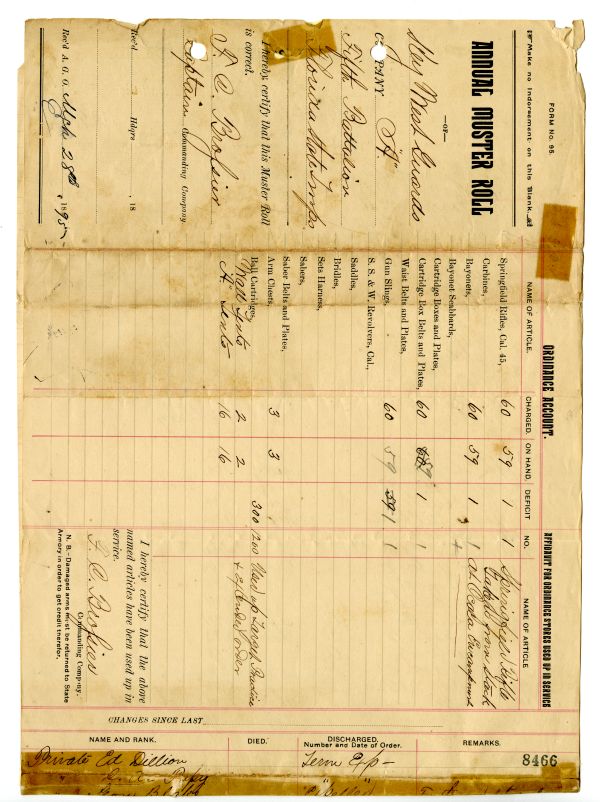 FORM No. 95.
Make no Indorsement on this Blank.
ANNUAL MUSTER ROLL
—OF—
Key West Guards
COMPANY "A"
Fifth Battalion
Florida State Troops
I hereby certify that this Muster Roll
is correct.
F. C. Brossier
Captain Commanding Company
Rec'd Hdqrs 18
Rec'd A. G. O. Mch 28th, 1895
ORDINANCE ACCOUNT.
NAME OF ARTICLE. CHARGED. ON HAND. DEFICIT
Springfield Rifles, Cal. 45, 60 59 1
Carbines,
Bayonets, 60 59 1
Bayonet Scabbards,
Cartridge Boxes and Plates,
Cartridge Box Belts and Plates, 60 59 1
Waist Belts and Plates,
Gun Slings, 60 59 1
S. S. & W. Revolvers, Cal.,
Saddles,
Bridles,
Sets Harness,
Sabers,
Saber Belts and Plates,
Arm Chests, 3 3
Ball Cartridges, 300
Wall Tents 2 2
A Tents 16 16
AFFIDAVIT FOR ORDINANCE STORES USED UP IN SERVICE
NO. NAME OF ARTICLE
1 Springfield Rifle
from stack
at Ocala Encampment
1200 Used up Target Practice
I hereby certify that the above
named articles have been used up in
service.
F. C. Brossier
Commanding Company.
N. B.—Damaged arms must be returned to State
Armory in order to get credit therefor.
CHANGES SINCE LAST
NAME AND RANK. DIED. DISCHARGED. Number and Date of Order. REMARKS.
8466
Private Ed Dillion Term Exp—